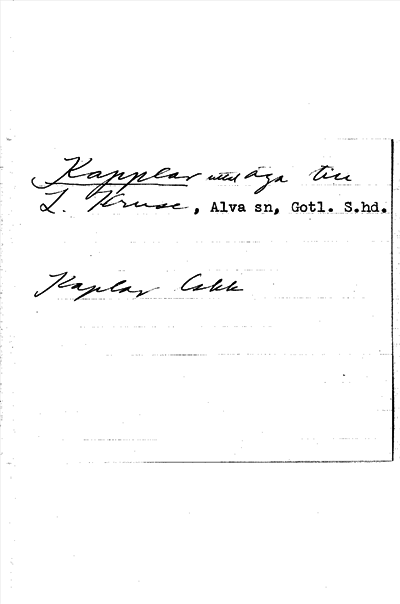 Kapplar med äga till
L. Kruse, Alva sn, Gotl. S.hd.
Kaplar